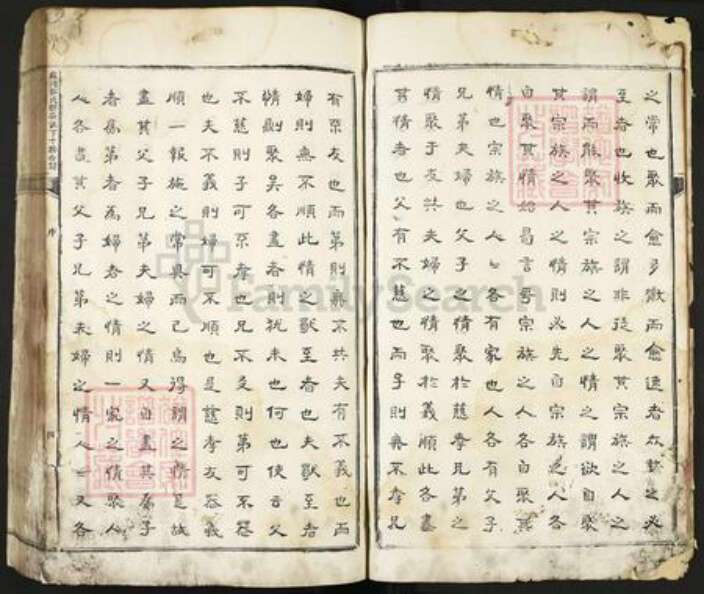 之常也聚而愈多散而愈速者在勢之必
至者也收族之謂非徒聚其宗族之人之
謂而能聚其宗族之人之情之謂欲自聚
其宗族之人之情則必先自宗族之人各
自聚其情始曷言乎宗族之人各自聚其
情也宗族之人人各有家也人各有父子
兄弟夫婦也父子之情聚於慈孝兄弟之
情聚于友共夫婦之情聚於義順此各盡
其情者也父有不慈也而子則無不孝兄
有不友也而弟則無不共夫有不義也而
婦則無不順此情之獻至者也夫獻至者
情則聚矣各盡者則猶未也何也使云父
不慈則子可不孝也兄不友則弟可不恭
也夫不義則婦可不順也是慈孝友恭義
順一報施之常典而已烏得謂之情是故
盡其父子兄弟夫婦之情又自盡其為子
者為弟者為婦者之情則一家之情聚人
人各盡其父子兄弟夫婦之情人人又各
序
四
FamilySearch